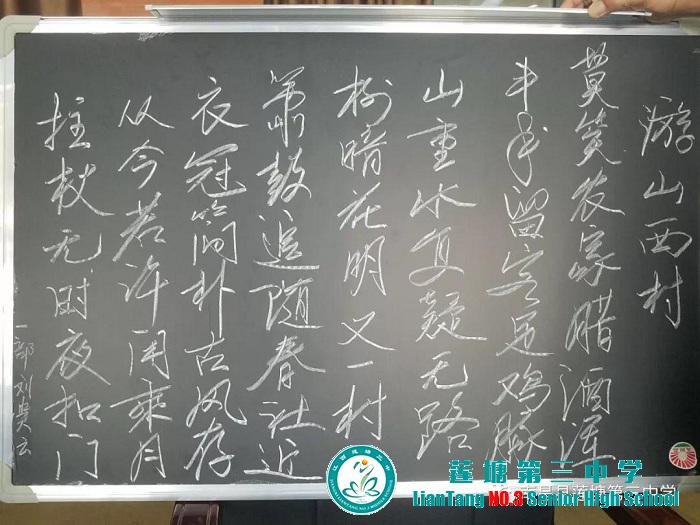 游山西村
莫笑农家腊酒浑
丰年留客足鸡豚
山重水复疑无路
柳暗花明又一村
箫鼓追随春社近
衣冠简朴古风存
从今若许闲乘月
拄杖无时夜扣门
一部刘
莲塘第三中学
LianTang NO.3 Senior High School